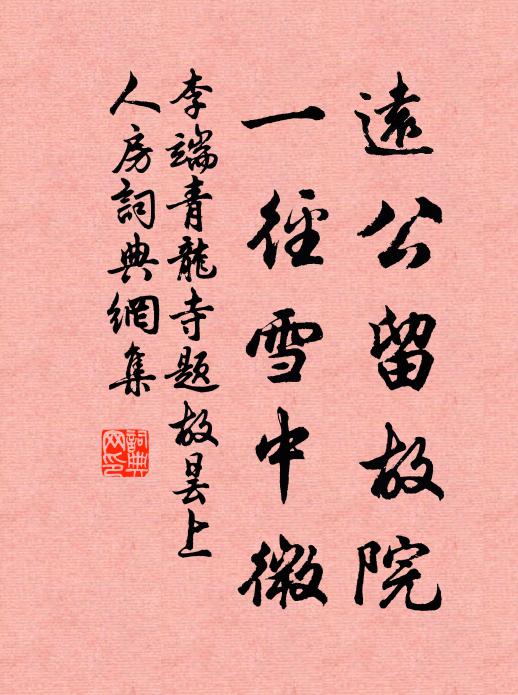 遠公留故院
一徑雪中微
李端青龍寺題故曇上
人房詞典網集
詞典網印